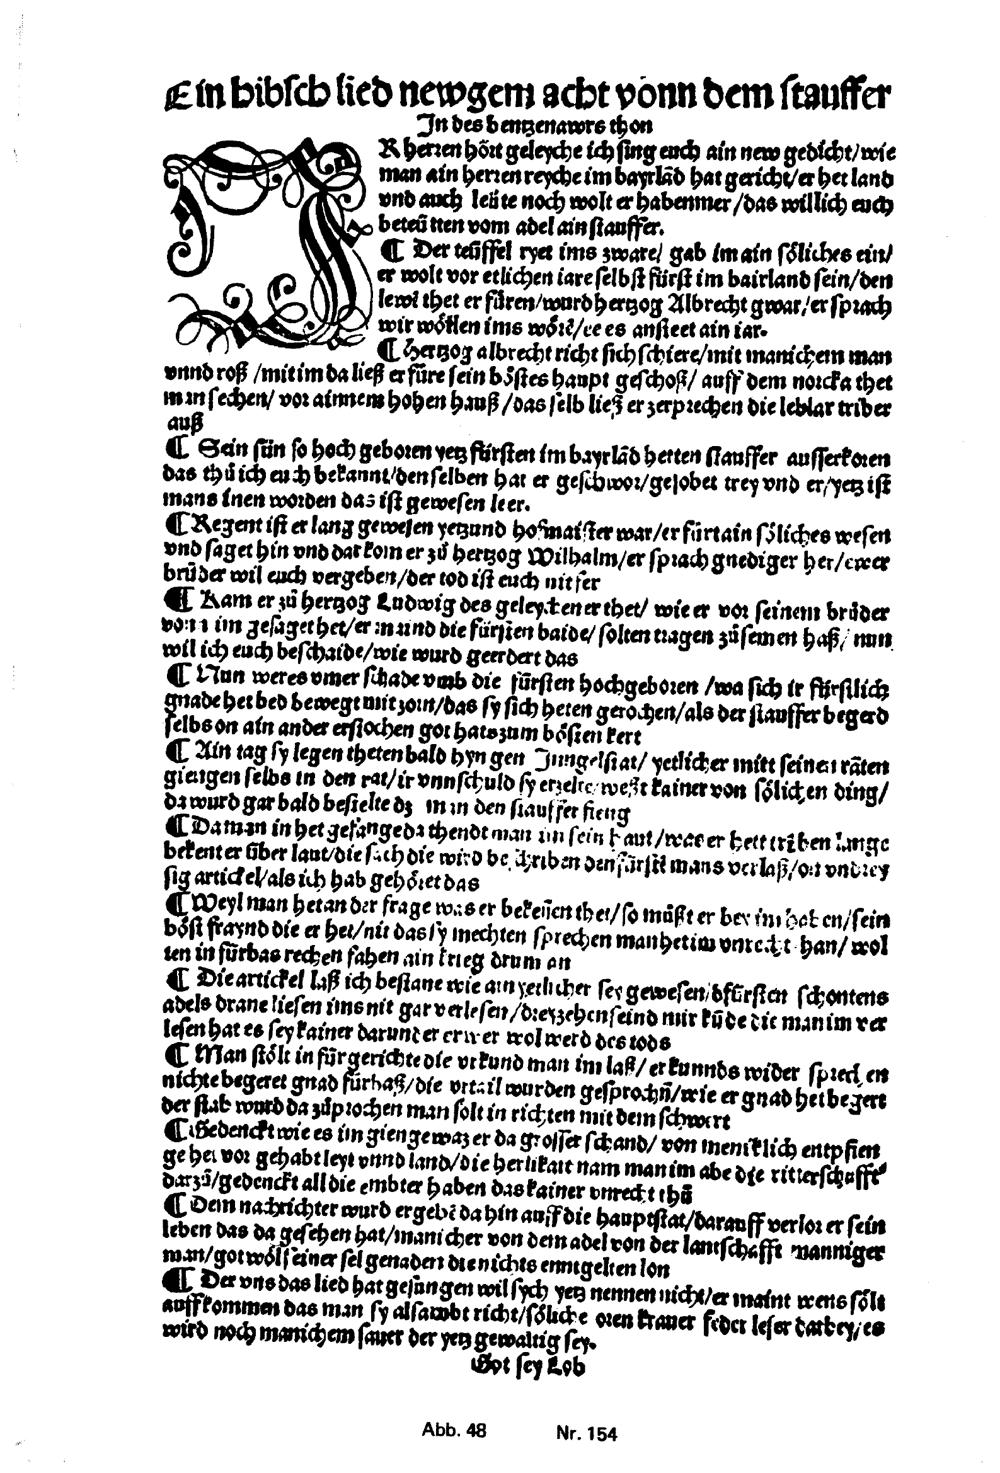 Ein hibsch lied newgem acht vonn dem stauffer
In des bentzenawrs thon
IR herren hört geleyche ich sing euch ain new gedicht/wie
man ain herren reyche im bayrlãd hat gericht/er het land
vnd auch leüte noch wolt er habenmer/das willich euch
beteütten vom adel ain stauffer.
¶ Der teüffel ryet ims zware/ gab im ain söliches ein/
er wolt vor etlichen iare selbst fürst im bairland sein/den
lewẽ thet er füren/ward hertzog Albrecht gwar/er sprach
wir wöllen ims wörẽ/ee es ansteet ain iar.
¶ Hertzog albrecht richt sich schiere/mit manichem man
vnnd roß /mit im da ließ er füre sein böstes haupt geschoß/ auff dem norcka thet
man sechen/ vor ainnem hohen hauß/das selb ließ er zerprechen die leblar triber
auß
¶ Sein sün so hoch geboren yetz fürsten im bayrlãd hetten stauffer ausserkoren
das thů ich euch bekannt/den selben hat er geschwor/gelobet trey vnd er/yetz ist
mans inen worden das ist gewesen leer.
¶ Regent ist er lang gewesen yetzund hofmaister war/er fürt ain söliches wesen
vnd saget hin vnd dar kom er zů hertzog Wilhalm/er sprach gnediger her/ewer
brůder wil euch vergeben/der tod ist euch nit fer
¶ Kam er zů hertzog Ludwig des geleychen er thet/ wie er vor seinem brůder
vonn im gesaget het/er mainnd die fürsten baide/ solten tragen zůsamen haß/ nun
wil ich euch beschaide/wie wurd geendert das
¶ Nun weres ymer schade vmb die fürsten hochgeboren /wa sich ir fürstlich
gnade het bed bewegt mit zorn/das sy sich heten gerochen/als der stauffer begerd
selbs on ain ander erstochen got hats zum bösten kert
¶ Ain tag sy legen theten bald hyn gen Jngelstat/ yetlicher mitt seinen räten
giengen selbs in den rat/ir vnnschuld sy erzelten/west kainer von sölichen ding/
da wurd gar bald bestelte dz man den stauffer fieng
¶ Da man in het gefange da thendt man im sein haut/was er hett triben lange
bekent er über laut/die sach die wird beschriben den fürstẽ mans verlaß/ort vndrey
sig artickel/als ich hab gehöret das
¶ Weyl man het an der frage was er bekeñen thet/so müßt er bey im haben/sein
böst fraynd die er het/nit das sy mechten sprechen man het im vnrecht than/wol
ten in fürbas rechen fahen ain krieg drum an
¶ Die artickel laß ich bestane wie ain yetlicher sey gewesen/dfürsten schontens
adels drane liesen ims nit gar verlesen/dreyzehen seind mir kũde die man im ver
lesen hat es sey kainer darunder er wer wol werd des tods
¶ Man stölt in für gerichte die vrkund man im laß/er kunnds wider sprechen
nichte begeret gnad fürbaß/die vrtail wurden gesprochñ/wie er gnad het begert
der stab wurd da zůprochen man solt in richten mit dem schwert
¶ Gedenckt wie es im gienge waz er da grosser schand/ von menicklich entpfien
ge het vor gehabt leyt vnnd land/die herlikait nam man im abe die ritterschafft
darzů/gedenckt all die embter haben das kainer vnrecht thů
¶ Dem nachrichter wurd ergebẽ da hin auff die hauptstat/darauff verlor er sein
leben das da gesehen hat/manicher von dem adel von der lantschafft manniger
man/got wöll seiner sel genaden die nichts enntgelten lon
¶ Der vns das lied hat gesungen wil sych yetz nennen nicht/er maint wens sölt
auff kommen das man sy alsambt richt/söliche oren krauer feder leser darbey/es
wird noch manichem sauer der yetz gewaltig sey.
Got sey Lob
Abb. 48 Nr. 154